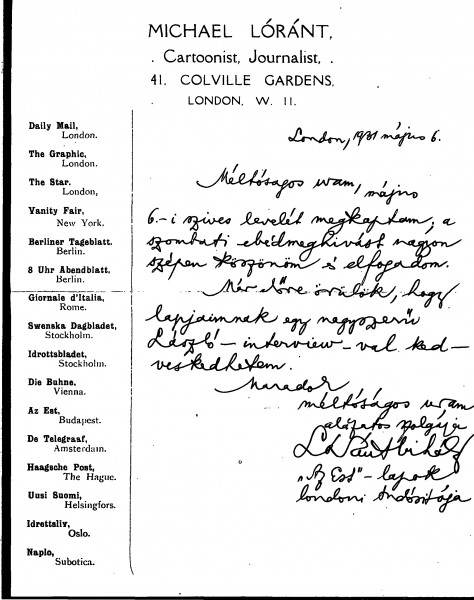 MICHAEL LÓRÁNT,
. Cartoonist, Journalist, .
41, COLVILLE GARDENS,
LONDON, W. 11.
Daily Mail,
London.
The Graphic,
London.
The Star.
London,
Vanity Fair,
New York.
Berliner Tageblatt.
Berlin.
8 Uhr Abendblatt.
Berlin.
Giornale d'Italia,
Rome.
Swenska Dagbladet,
Stockholm.
Idrottsbladet,
Stockholm.
Die Buhne,
Vienna.
Az Est,
Budapest.
De Telegraaf,
Amsterdam.
Haagsche Post,
The Hague.
Uusi Suomi,
Helsingfors.
Idrettaliv,
Oslo.
Naplo,
Subotica.
London, 1931 május 6.
Méltóságos uram, május
6.-i szives levelét megkaptam, a
szombati ebédmeghivást nagyon
szépen köszönöm és elfogadom.
Már előre örülök, hogy
lapjaimnak egy nagyszerű
László-interview-val ked-
veskedhetem.
Maradok
méltóságos uram
alázatos szolgája
Lóránt Mihály
„Az Est"-lapok
londoni tudósitója